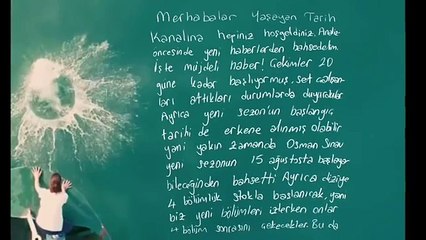 Merhabalar Yaşayan Tarih
Kanalına hepiniz hoşgeldiniz. Analiz
öncesinde yeni haberlerden bahsedelim.
İşte müjdeli haber! Çekimler 20
güne kadar başlıyormuş. Set çalışan-
ları attıkları durumlarda duyurdular
Ayrıca yeni sezon'un başlangıç
tarihi de erkene alınmış olabilir
yani yakın zamanda Osman Sınav
yeni sezonun 15 ağustosta başlaya-
bileceğinden bahsetti Ayrıca diziye
4 bölümlük stokla başlanacak, yani
biz yeni bölümleri izlerken onlar
4 bölüm sonrasını çekecekler. Bu da